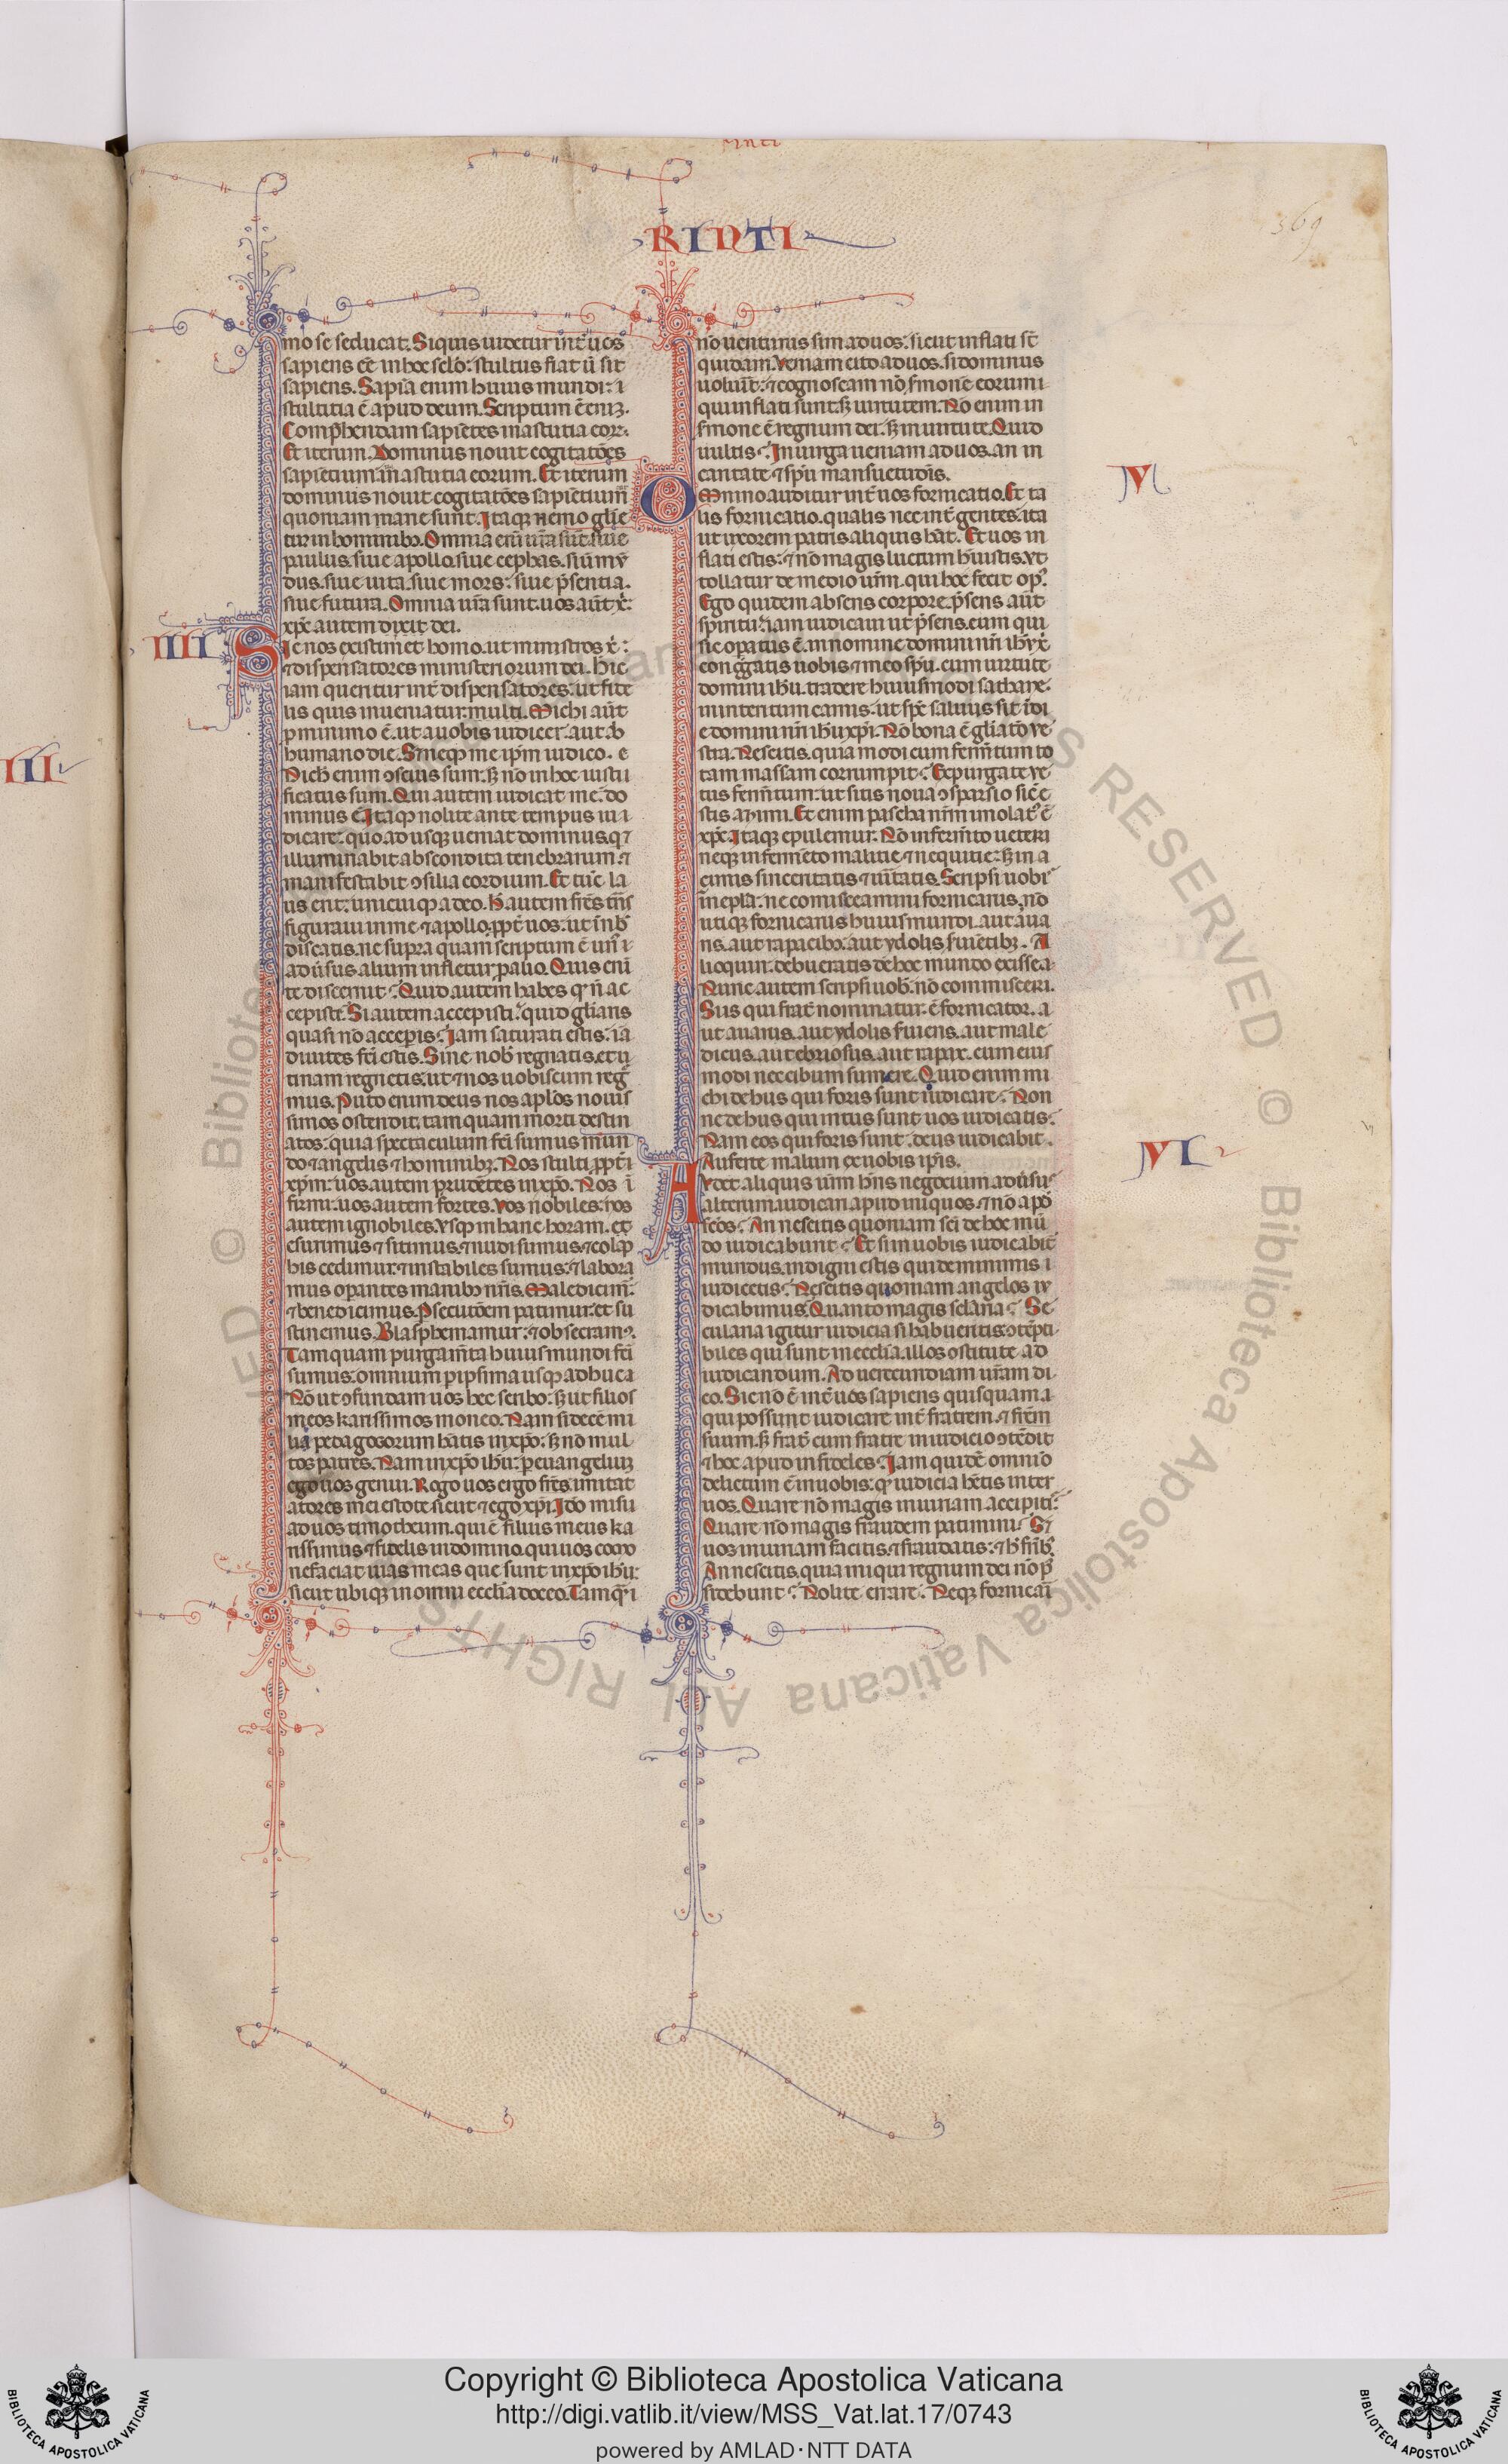 RINTI
369
mo se seducat. Siquis uidetur int̄ uos
sapiens eē in hoc sc̄lo: stultus fiat ū sit
sapiens. Sapīa enim huius mundi: i
stultitia ē apud deum. Scriptum ē eniꝫ.
Comp̄hendam sapiētes in astutia eoꝝ.
Et iterum. Dominus nouit cogitatōes
sapiētium in astutia eorum. Et iterum
dominus nouit cogitatōes sapiētium
quoniam uane sunt. Itaqꝫ nemo glīe
tur in hominibꝫ. Omnia eni ūra sūt. siue
paulus. siue apollo. siue cephas. siū mū
dus. siue uita. siue mors: siue p̄sentia.
siue futura. Omnia ūra sunt. uos aūt xp̄i:
xpc̄ autem dixit dei.
IIII
Sic nos existimet homo. ut ministros xp̄i:
⁊ dispensatores ministeriorum dei. Hic
iam queritur int̄ dispensatores: ut fide
lis quis inueniatur: multi. Michi aūt
ꝓ minimo ē. ut a uobis iudicer. aut ab
humano die. S; neqꝫ me ip̄m iudico. e
Nich̄ enim ꝯscius sum: sꝫ nō in hoc iusti
ficatus sum. Qui autem iudicat me. do
minus ē. Itaqꝫ nolite ante tempus iu i
dicare: quo ad usqꝫ ueniat dominus. q ⁊
illuminabit abscondita tenebrarum. ⁊
manifestabit ꝯsilia cordium. Et tūc la
us erit: unicuiqꝫ a deo. H̄ autem frēs tn̄s
figuraui in me ⁊ apollo. ꝓpt̄ uos: ut in nob̄
discatis. ne supra quam scriptum ē un̄ i
aduersus alium infletur p̄ alio. Quis eni
te discernit? Quid autem habes qđ n̄ ac
cepisti. Si autem accepisti: quid glīaris
quasi nō acceperis? Iam saturati estis: iā
diuites fc̄i estis. Sine nob̄ regnatis. et u
tinam regnetis: ut ⁊ nos uobiscum reḡ
mus. Puto enim deus nos apl̄os nouis
simos ostendit: tamquam morti destin
atos: quia spectaculum fc̄i sumus mun
do ⁊ angelis ⁊ hominibꝫ. Nos stulti ꝓpt̄ i
xp̄m: uos autem prudētes in xp̄o. Nos i
firmi: uos autem fortes. Vos nobiles: nos
autem ignobiles. Vsqꝫ in hanc horam. et
esurimus ⁊ sitimus. ⁊ nudi sumus. ⁊ colap̄
his cedimur: ⁊ instabiles sumus: ⁊ labora
mus operantes manibꝫ nr̄is. Maledicim̄:
⁊ benedicimus. P̄secutōem patimur: et su
stinemus. Blasphemamur: ⁊ obsecram̄.
Tamquam purgam̄ta huius mundi fc̄i
sumus: omnium peripsima usqꝫ adhuc a
Nō ut ꝯfundam uos hec scribo: sꝫ ut filios
meos karissimos moneo. Nam si decē mi
lia pedagogorum hātis in xp̄o: sꝫ nō mul
tos patres. Nam in xp̄o ih̄u: ꝑ euangeliuꝫ
ego uos genui. Rogo uos ergo frēs: imitat
atores mei estote sicut ⁊ ego xp̄i. Ido misi
ad uos timotheum. qui ē filius meus ka
rissimus ⁊ fidelis in domino. qui uos cōmo
nefaciat uias meas que sunt in xp̄o ih̄u:
sicut ubiqꝫ in omni eccl̄ia doceo. Tamqꝫ i
nō uenturus sim ad uos: sicut inflati st̄
quidam. Veniam cito ad uos. si dominus
uoluīt: ⁊ cognoscam nō sermonē eorum i
qui inflati sunt: sꝫ uirtutem. Nō enim in
sermone ē regnum dei: sꝫ in uirtute. Quid
uultis? In uirga ueniam ad uos. an in
caritate ⁊ sp̄u mansuetudīs.
V
Omnino auditur int̄ uos fornicatio. Et ta
lis fornicatio. qualis nec int̄ gentes. ita
ut uxorem patris aliquis hāt. Et uos in
flati estis: ⁊ nō magis luctum hūistis. Vt
tollatur de medio urm̄. qui hoc fecit op̄.
Ego quidem absens corpore. p̄sens aūt
spiritu: iam iudicaui ut p̄sens. eum qui
sic opatus ē. in nomine domini nr̄i ih̄u xp̄i
congregatis nobis ⁊ meo sp̄u. cum uirtute
domini ih̄u: tradere huiusmodi sathane.
in interitum carnis: ut spc̄ saluus sit i di
e domini nr̄i ih̄u xp̄i. Nō bona ē glīatō ve
stra. Nescitis. quia modicum ferm̄tum to
tam massam corrumpit? Expurgate ve
tus ferm̄tum: ut sitis noua ꝯsparsio sic e
stis azimi. Et enim pascha nr̄m imolat̄ ē
xpc̄. Itaqꝫ epulemur: Nō in ferm̄to ueteri
neqꝫ in fermēto malitie ⁊ nequitie: sꝫ in a
cimis sinceritatis ⁊ uītatis. Scripsi uobis
in epl̄a: ne comisceamini fornicariis. nō
utiqꝫ fornicariis huius mundi. aut aua
ris. aut rapacibꝫ. aut ydolis suiētibꝫ. A
lioquin: debueratis de hoc mundo exisse a
Nunc autem scripsi uob̄. nō commisceri.
Siis qui frat̄ nominatur: ē fornicator. a
ut auarus. aut ydolis suiens. aut male
dicus. aut ebriosus. aut rapax. cum eius
modi nec cibum sumere. Quid enim mi
chi de hiis qui foris sunt iudicare? Non
ne de hiis qui intus sunt uos iudicatis:
Nam eos qui foris sunt. deus iudicabit.
Auferte malum ex uobis ip̄is.
VI
Audet aliquis urm̄ hn̄s negocium aduersus
alterum. iudicari apud iniquos. ⁊ nō apd̄
sc̄os? An nescitis quoniam sc̄i de hoc mū
do iudicabunt? Et si in uobis iudicabit̄
mundus. indigni estis qui de minimis i
iudicetis? Nescitis quoniam angelos iu
dicabimus. Quanto magis sc̄laria? Se
cularia igitur iudicia si habueritis: ꝯtēpti
biles qui sunt in eccl̄ia. illos ꝯstitute ad
iudicandum. Ad uerecundiam ur̄am di
co. Sic nō ē int̄ uos sapiens quisquam a
qui possunt iudicare int̄ fratrem. ⁊ frēm
suum. sꝫ frat̄ cum fratre in iudicio ꝯtēdit
⁊ hoc apud infideles? Iam quidē omnīo
delictum ē in uobis: qđ iudicia hētis inter
uos. Quare nō magis iniuriam accipitis:
Quare nō magis fraudem patimini? S;
uos iniuriam facitis. ⁊ fraudatis: ⁊ h̄ frīb.
An nescitis. quia iniqui regnum dei nō pos
sidebunt? Nolite errare? Neqꝫ fornicarī
III
Copyright © Biblioteca Apostolica Vaticana
http://digi.vatlib.it/view/MSS_Vat.lat.17/0743
powered by AMLAD·NTT DATA
BIBLIOTECA APOSTOLICA VATICANA
BIBLIOTECA APOSTOLICA VATICANA